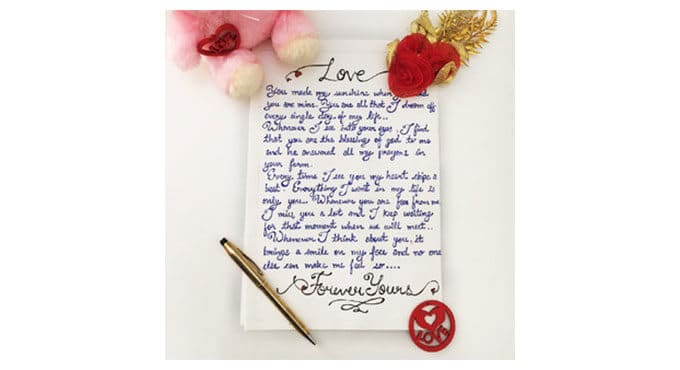 LOVE
Love
You made my sunshine when
you are mine. You are all that I dream off
every single day of my life..
Whenever I see into your eyes, I find
that you are the blessings of god to me
and he answered all my prayers in
your form.
Every time I see you my heart skips a
beat. Everything I want in my life is
only you.. Whenever you are far from me
I miss you a lot and I keep waiting
for that moment when we will meet..
Whenever I think about you, it
brings a smile on my face and no one
else can make me feel so....
Forever Yours
LOVE